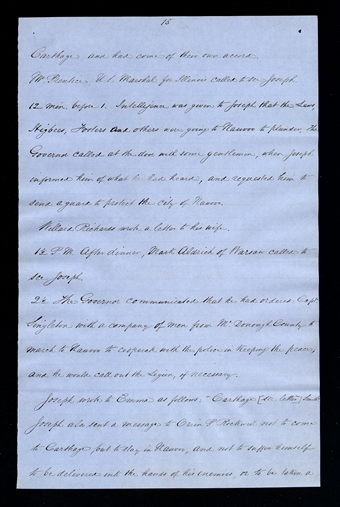 15
Carthage and had come of their own accord.
Mr Prentice U.S. Marshal for Illinois called to see Joseph
12 min before 1. Intelligence was given to Joseph that the Laws,
Higbees, Fosters and others were going to Nauvoo to plunder, the
Governor called at the door with some gentlemen, when Joseph
informed him of what he had heard, and requested him to
send a guard to protect the city of Nauvoo.
Willard Richards wrote a letter to his wife.
P.M. After dinner, Mark Aldrich of Warsaw called to
see Joseph.
The Governor communicated that he had ordered Capt
Singleton with a company of men from McDonough County to
march to Nauvoo to cooperate with the police in keeping the peace,
and he would call out the Legion, if necessary.
Joseph wrote to Emma as follows, "Carthage [see letter]
Joseph also sent a message to Orrin P. Rockwell not to come
to Carthage but to stay in Nauvoo, and not to suffer himself
to be delivered into the hands of his enemies, or to be taken a